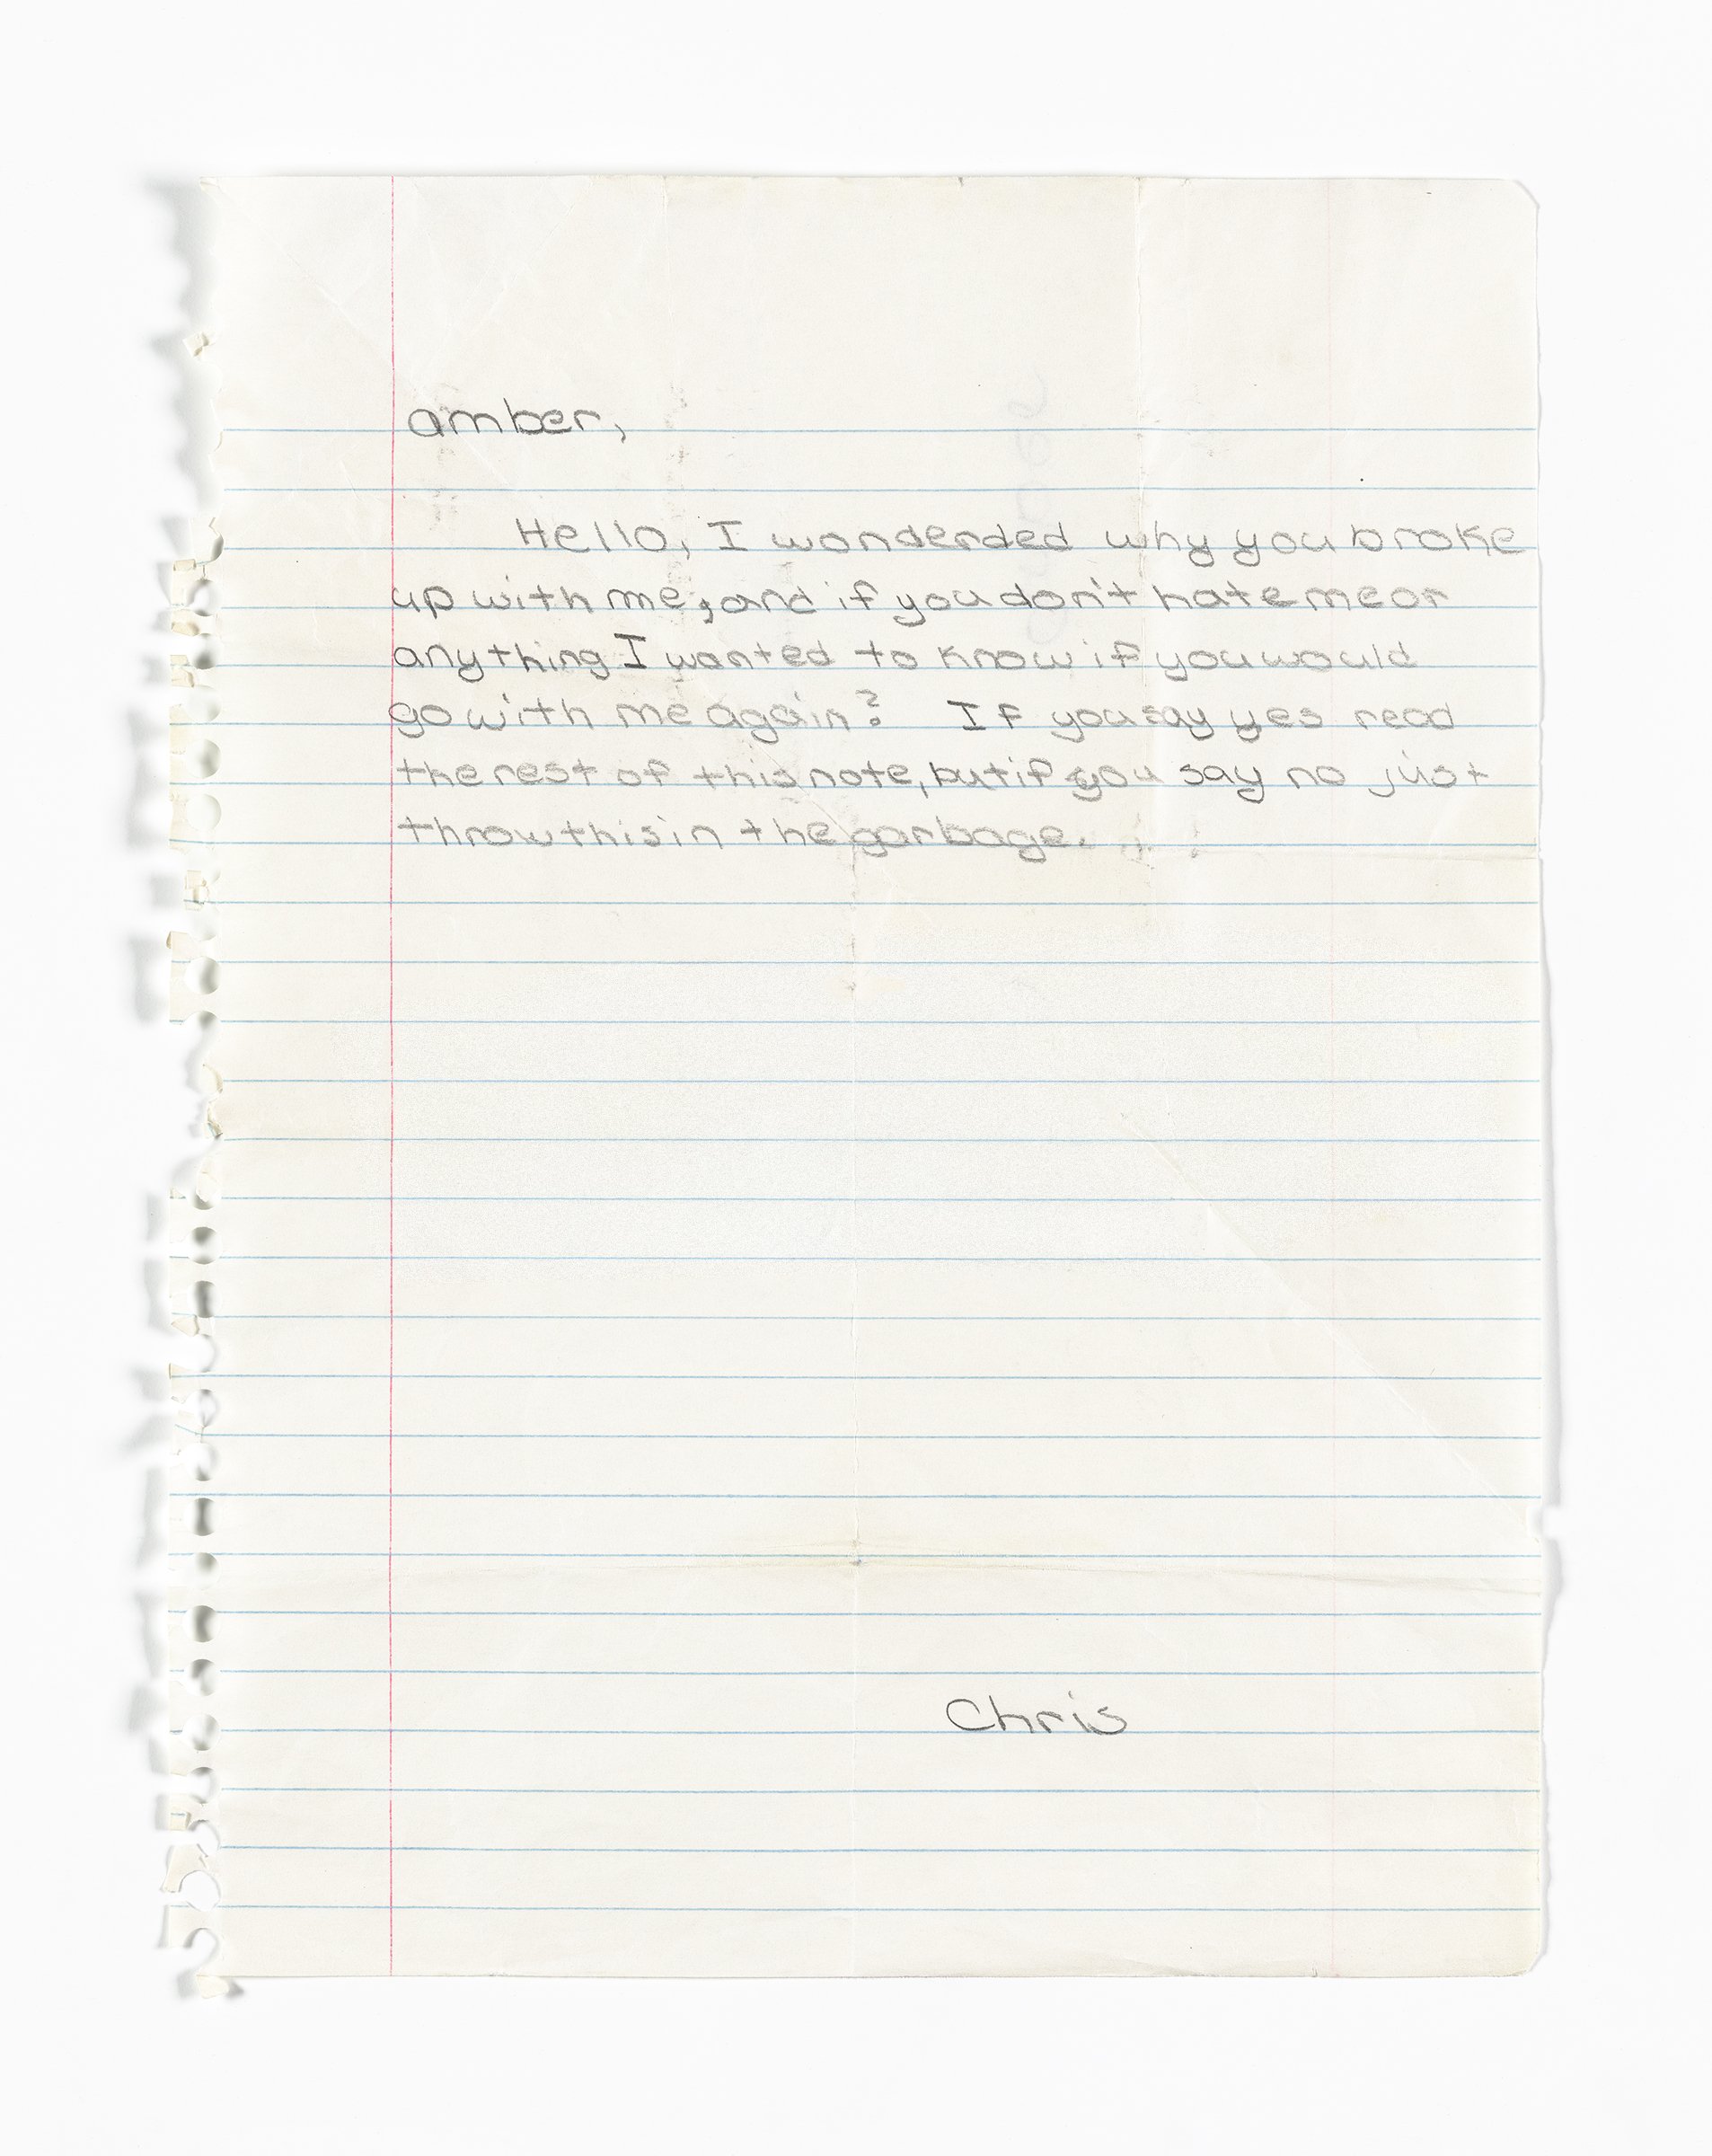 amber,
Hello, I wonderded why you broke
up with me, and if you don't hate me or
anything I wanted to know if you would
go with me again? If you say yes read
the rest of this note, but if you say no just
throw this in the garbage.
Chris